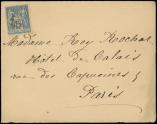 Madame Roy Rochat
Hôtel de Calais
rue des Capucines 5
Paris